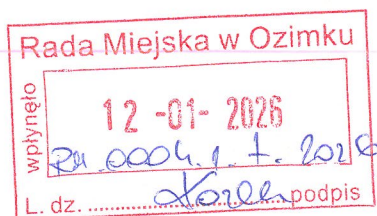 Rada Miejska w Ozimku
wpłynęło
12 -01- 2026
0004.1.
L. dz. .......... podpis